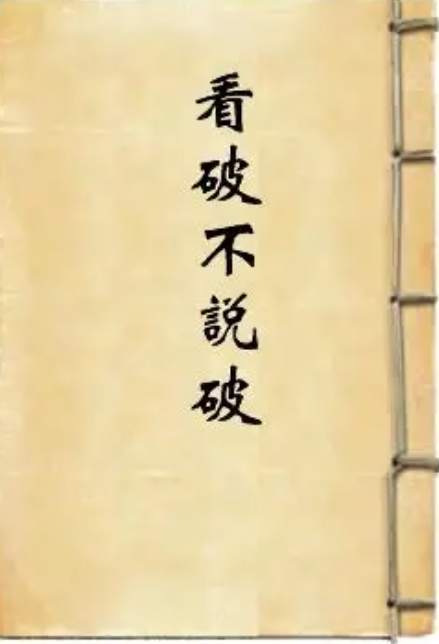 看破不説破